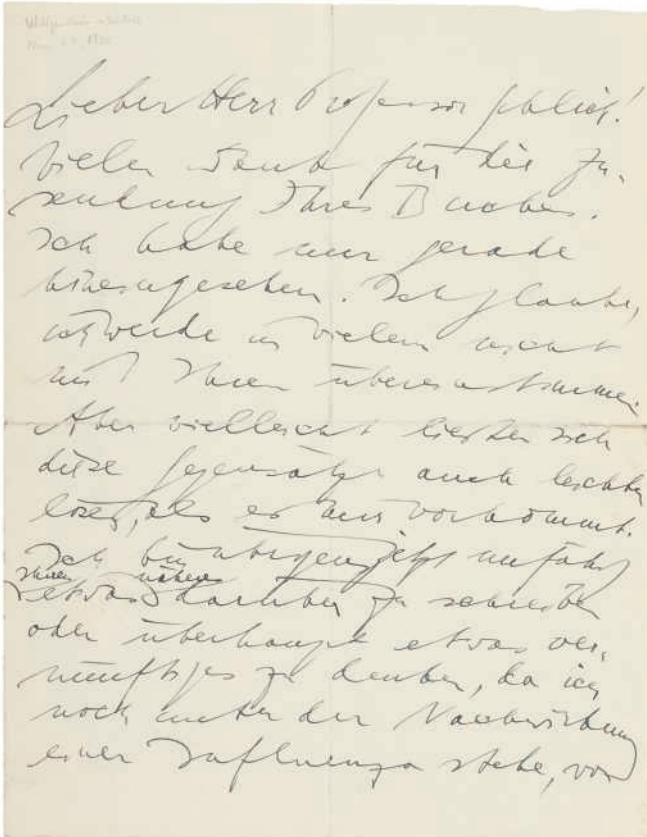 Lieber Herr Professor Schlick!
Vielen Dank für die Zu-
sendung Ihres Buches.
Ich habe nur gerade
hineingesehen. Ich glaube,
ich werde in vielem nicht
mit Ihnen übereinstimmen.
Aber vielleicht ließen sich
diese Gegensätze auch leichter
lösen, als es mir vorkommt.
Ich bin übrigens jetzt unfähig
Ihnen näheres
etwas darüber zu schreiben
oder überhaupt etwas ver-
nünftiges zu denken, da ich
noch unter der Nachwirkung
einer Influenza stehe, von